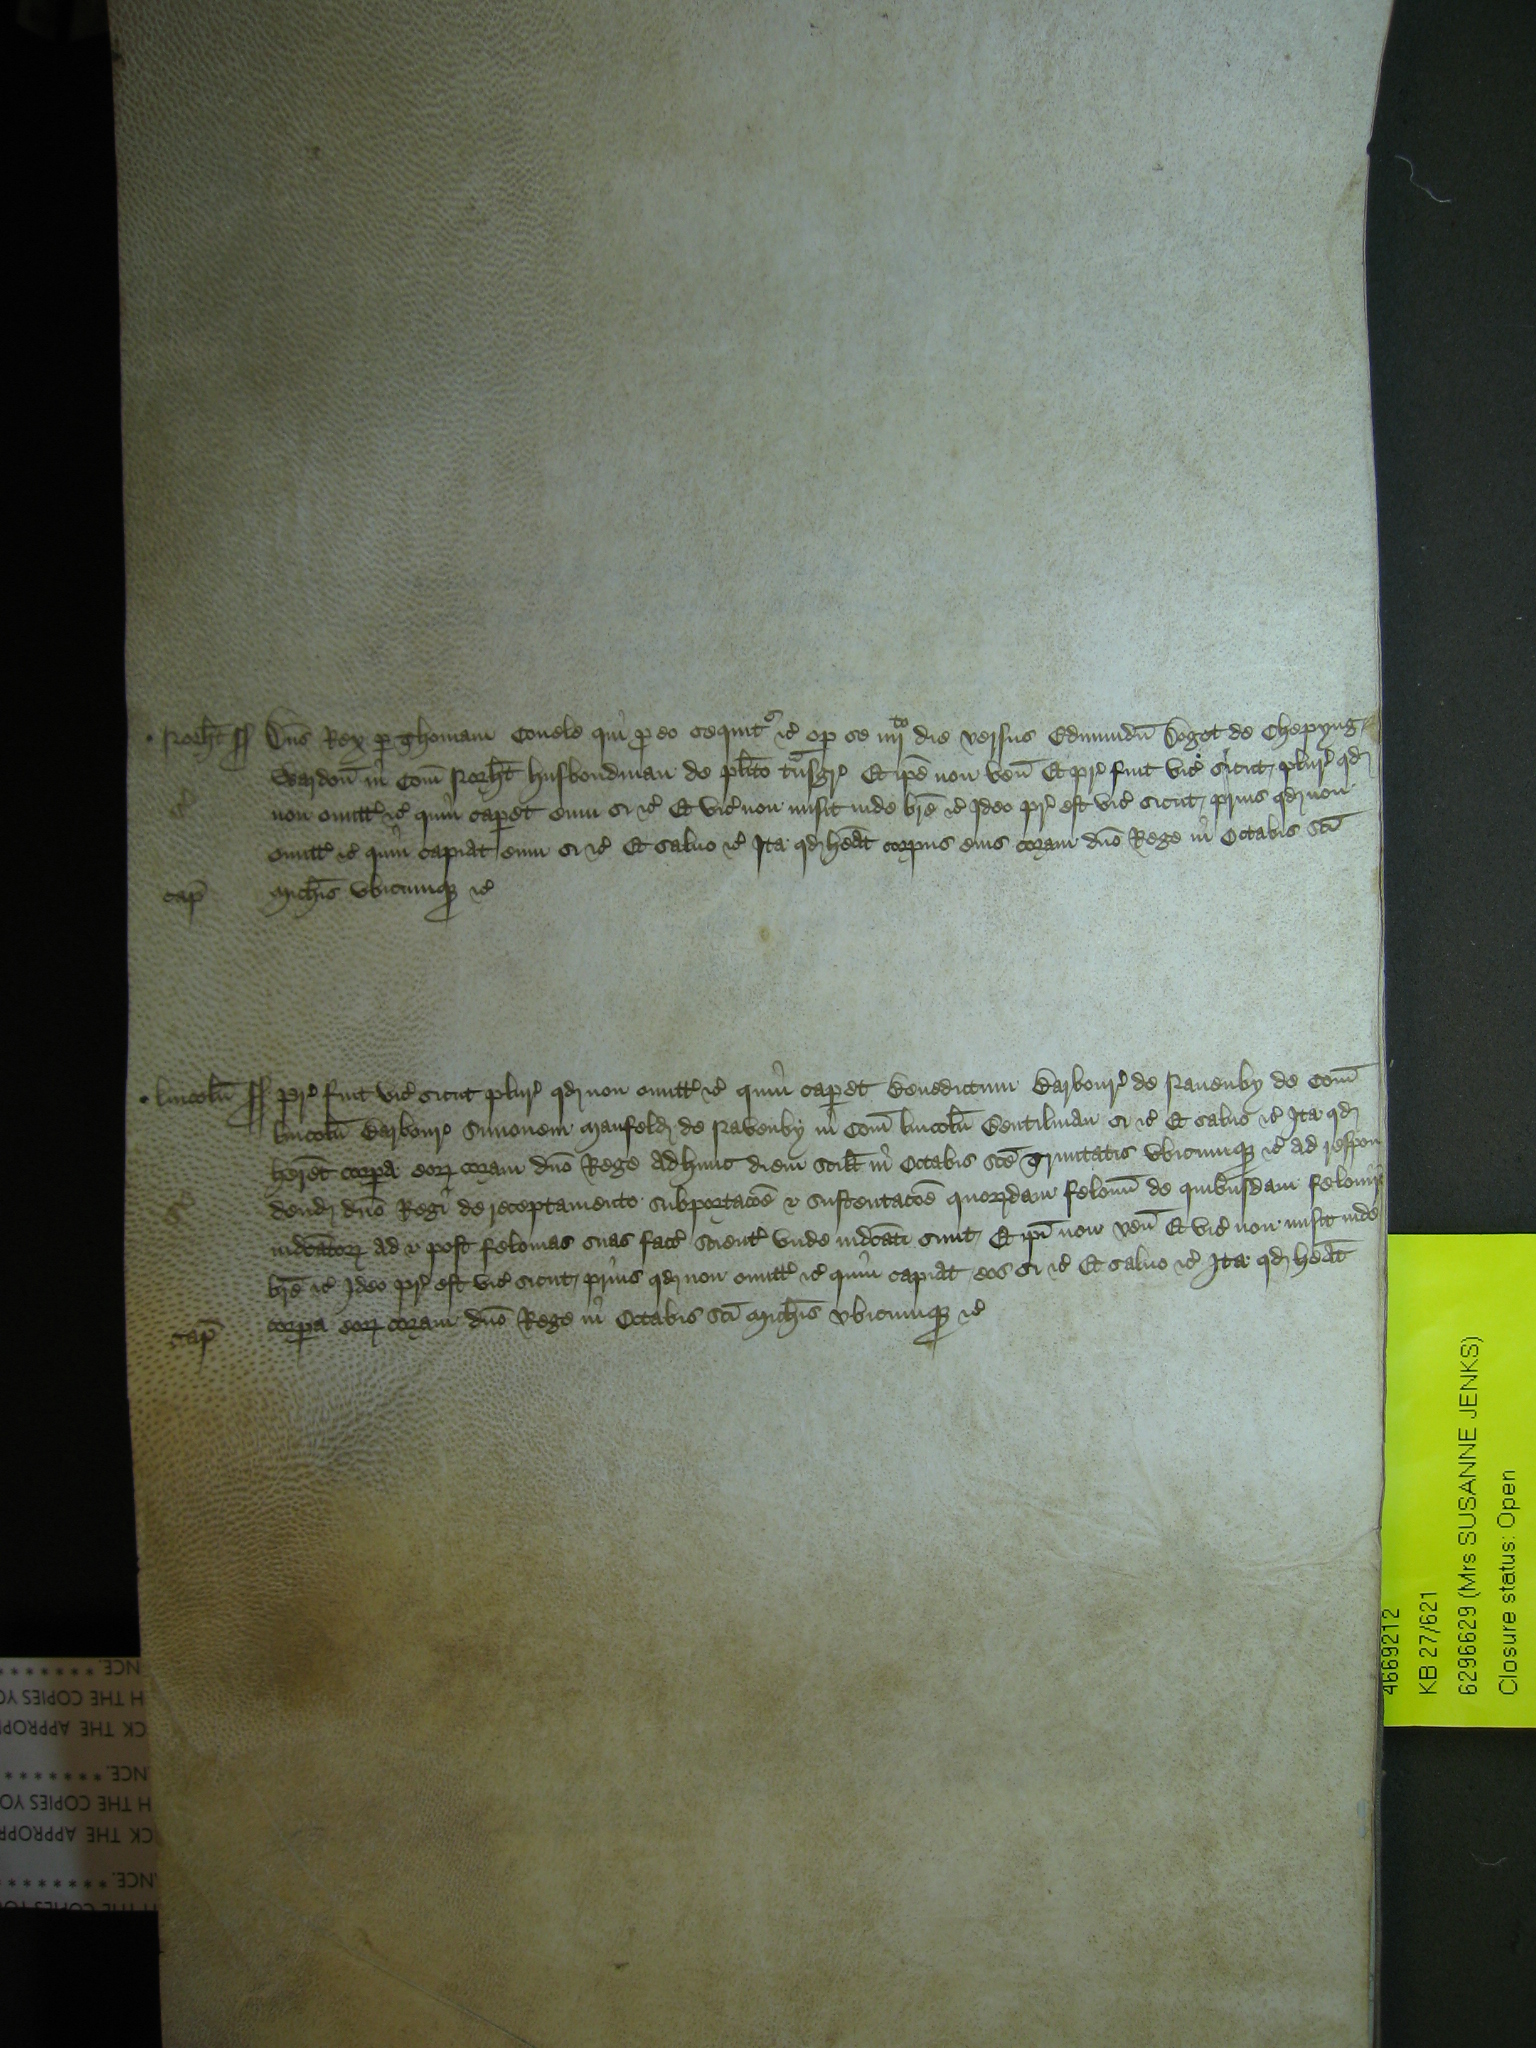 Norht ss Dn̄s Rex p̲ Thomam Covele qui p̲ eo sequit᷑ ⁊c̉ op̄ se iiij^to die versus Edmundū Doget de Chepyng
Wardon̄ in Com̄ Norht husbondman de pl̄ito t̄nsgr̉ Et ip̄e non ven̄ Et pr̉ fuit vic̉ sicut plur̉ qd̛
non omitt̉ ⁊c̉ quin cap̲et eum si ⁊c̉ Et vic̉ non misit inde br̄e ⁊c̉ Ideo pr̉ est vic̉ sicut prius qd̛ non
omitt̉ ⁊c̉ quin capiat eum si ⁊c̉ Et salvo ⁊c̉ Ita qd̛ hēat corpus eius coram dn̄o Rege in Octabis sc̄i
cap̄ Mich̄is ubicumq̨ ⁊c̉
Lincoln̄ ss pr̉ fuit vic̉ sicut plur̉ qd̛ non omitt̉ ⁊c̉ quin cap̲et Benedictum Barbour̉ de Navenby de Com̄
Lincoln̄ Barbour̉ Simonem Maufeld̛ de Navenby in Com̄ Lincoln̄ Gentilman si ⁊c̉ Et salvo ⁊c̉ Ita qd̛
hēret corp̲a eoꝝ coram dn̄o Rege ad hunc diem scil̄t in Octabis sc̄e Trinitatis ubicumq̨ ⁊c̉ ad respon
dend̛ dn̄o Regi de receptamento subportac̄oe ⁊ sustentac̄oe quoꝝdam felonū de quibusdam feloniis
indc̄atoꝝ ad ⁊ post felonias suas fact̉ scient̉ unde indc̄ati sunt Et ip̄i non ven̄ Et vic̉ non misit inde
br̄e ⁊c̉ Ideo pr̉ est vic̉ sicut prius qd̛ non omitt̉ ⁊c̉ quin capiat eos si ⁊c̉ Et salvo ⁊c̉ Ita qd̛ hēat
cap̄ corp̲a eoꝝ coram dn̄o Rege in Octabis sc̄i Mich̄is ubicumq̨ ⁊c̉
4669212
KB 27/621
6296629 (Mrs SUSANNE JENKS)
Closure status: Open
NCE. * * * * * * *
H THE COPIES YO
CK THE APPROPR
NCE. * * * * * * *
H THE COPIES YO
CK THE APPROPR
NCE. * * * * * * *